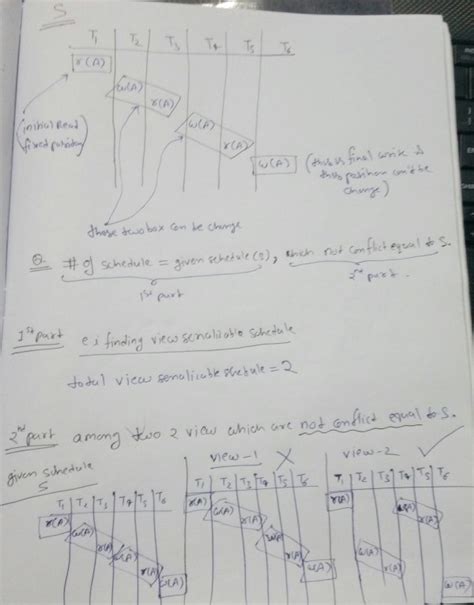 S
T1 T2 T3 T4 T5 T6
r(A)
w(A)
r(A)
w(A)
r(A)
w(A)
(initial Read
fixed position)
(this is final write is
this position can't be
change)
these two box can be change
Q. # of schedule = given schedule (s), which not conflict equal to S.
1st part
2nd part.
1st part e; finding view serializable schedule
total view serializable schedule = 2
2nd part among two 2 view which are not conflict equal to S.
given schedule
S
view-1 X
view-2 ✓
T1 T2 T3 T4 T5 T6
T1 T2 T3 T4 T5 T6
T1 T2 T3 T4 T5 T6
r(A)
w(A)
r(A)
w(A)
r(A)
w(A)
r(A)
w(A)
r(A)
w(A)
r(A)
w(A)
r(A)
w(A)
r(A)
w(A)
r(A)
w(A)